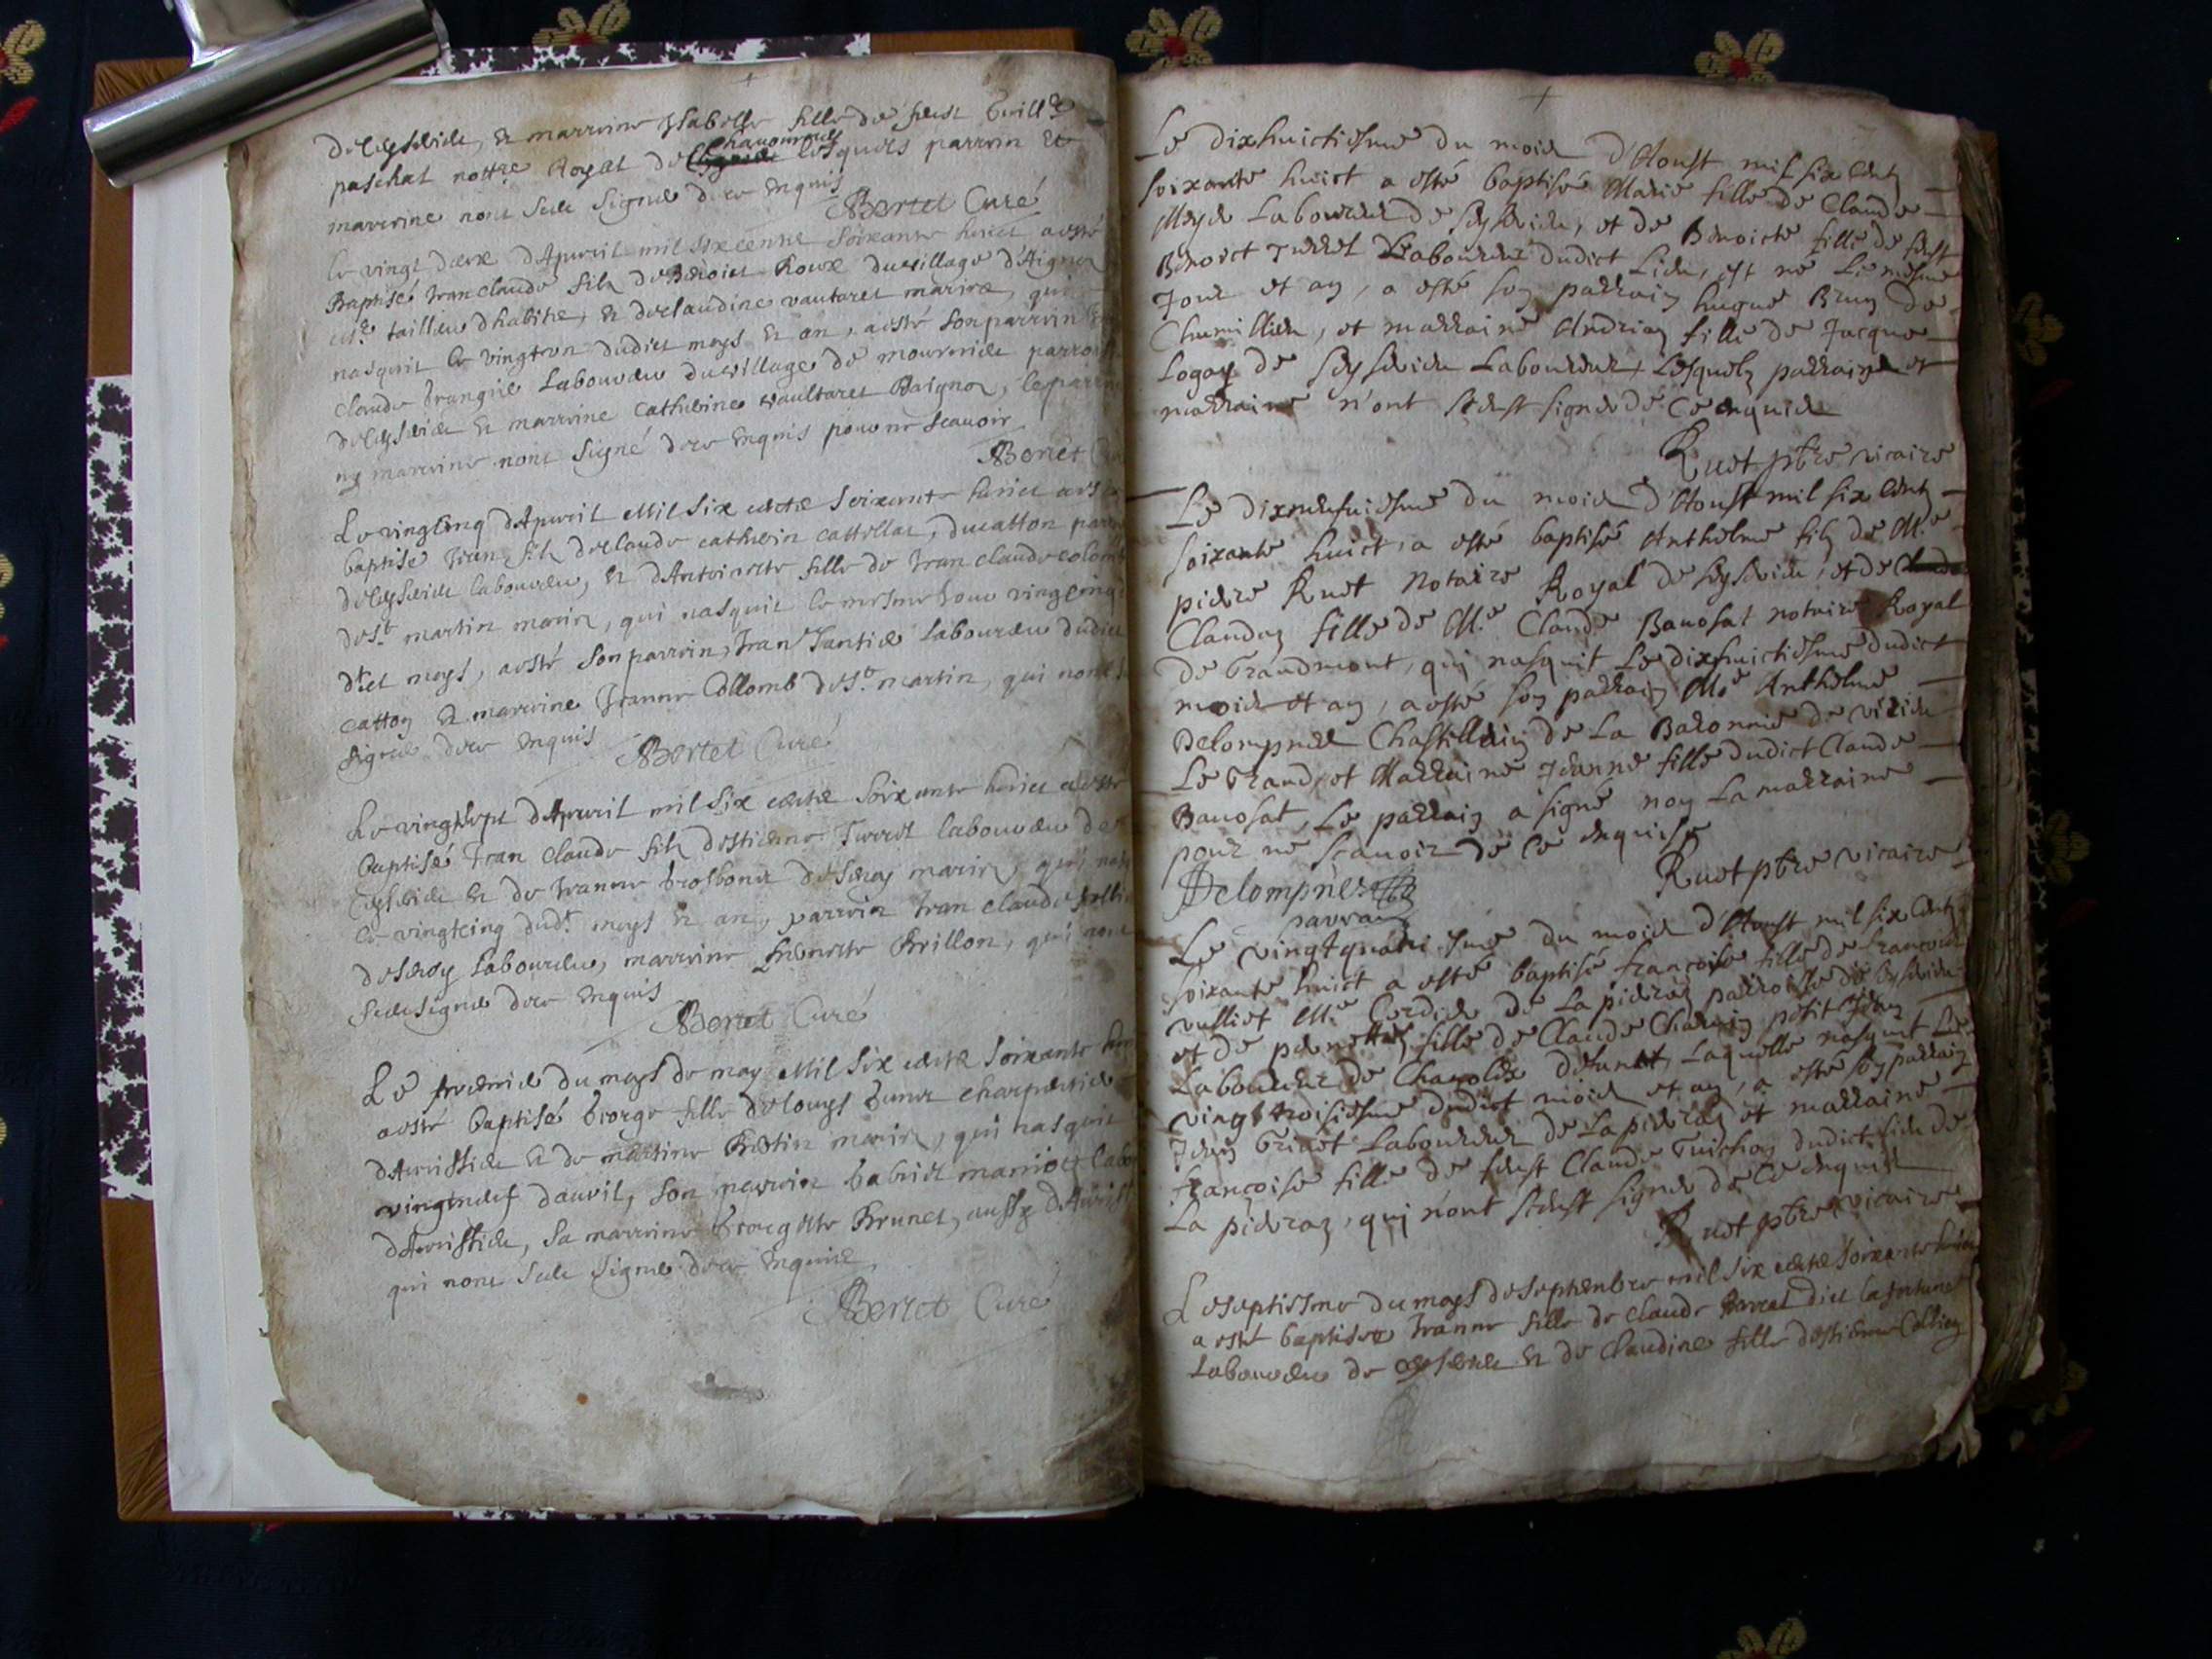 de Ceyserieu, et marrine Isabelle fille de feust
paschal nottre Royal de lesquels parrin et
marrine nont sceu signé de ce enquis
Bertet Curé
le vingt deux d'Apvril mil six cents soixante huict a esté
Baptisé Jean claude filz de Benoict Roux du village d'Aignoz
tailleu d'habitz, et de claudine vautaret mariez, qui
nasquit le vingt un dudict moys et an, a esté son parrin
claude laboureu du village de parroisse
de Ceyserieu et marrine catherine vaultaret d'aignoz, le parrin
ny marrine nont signé de ce enquis pour ne scavoir
Bertet
Le vingt cinq d'Apvril Mil six cents soixante huict a esté
baptisé Jean filz de claude catherin cattellar, du catton
de Ceyserieu laboureu, et d'Antoinette fille de Jean claude
de St martin mariez, qui nasquit le mesme jour vingt cinq
dict moys, a esté son parrin, Jean Jantie laboureu dudict
catton et marrine Jeanne Collomb de St martin, qui nont
signé de ce enquis
Bertet Curé
Le vingt sept d'Apvril mil six cents soixante huict a esté
baptisé Jean Claude filz d'estienne Turrel laboureu de
Ceyserieu et de Jeanne mariez, qui
le vingt cinq dudt moys et an, parrin Jean claude
laboureu, marrine Brillon, qui nont
sceu signé de ce enquis
Bertet Curé
Le premier du moys de may Mil six cents soixante
a esté baptisé George fille de louys charpentier
d'Avrissieu et de martine mariez, qui nasquit
vingt neuf d'avril, son parrin Gabriel
d'Avrissieu, sa marrine Georgette Brunet, aussy
qui nont sceu signé de ce enquis
Bertet Curé
Le dixhuictiesme du mois d'Aoust mil six cent
soixante huict a esté baptisé Marie fille de Claude
Laboureur de Ceyserieu, et de Benoicte fille de feust
Benoict Turrel Laboureur dudict Lieu, est né le mesme
Jour et an, a esté son parrain hugue Brun de
Chemillieu, et marraine Andrian fille de Jacque
Logoz de Ceyserieu Laboureur, Lesquelz parrain et
marraine n'ont sceust signer de ce enquis
Ruet pbre vicaire
Le dixneufviesme du mois d'Aoust mil six cent
soixante huict, a esté baptisé Anthelme filz de Me
pierre Ruet Notaire Royal de Ceyserieu, et de
Claudaz fille de Me Claude Bavosat notaire Royal
de Grandmont, qui nasquit Le dixhuictiesme dudict
mois et an, a esté son parrain Me Anthelme
Delompnes Chastellain de La Baronnie de virieu
Le Grand, et Marraine Jeanne fille dudict Claude
Bavosat, Le parrain a signé non La marraine
pour ne scavoir de ce enquise
Ruet pbre vicaire
Delompnes
parrain
Le vingtquatriesme du mois d'Aoust mil six cent
soixante huict a esté baptisé françoise fille de françois
vulliet Me Cordier de La pierraz parroisse de Ceyserieu
et de pernettaz fille de Claude Charvin petit Jean
Laboureur de deffunt, Laquelle nasquit Le
vingt troisiesme dudict mois et an, a esté son parrain
Jean Laboureur de La pierraz et marraine
françoise fille de feust Claude Guichon dudict lieu de
La pierraz, qui n'ont sceust signer de ce enquis
Ruet pbre vicaire
Le septiesme du moys de septembre mil six cents soixante huict
a esté baptisee Jeanne fille de claude dict lafortune
Laboureu de Ceyserieu et de Claudine fille d'estienne